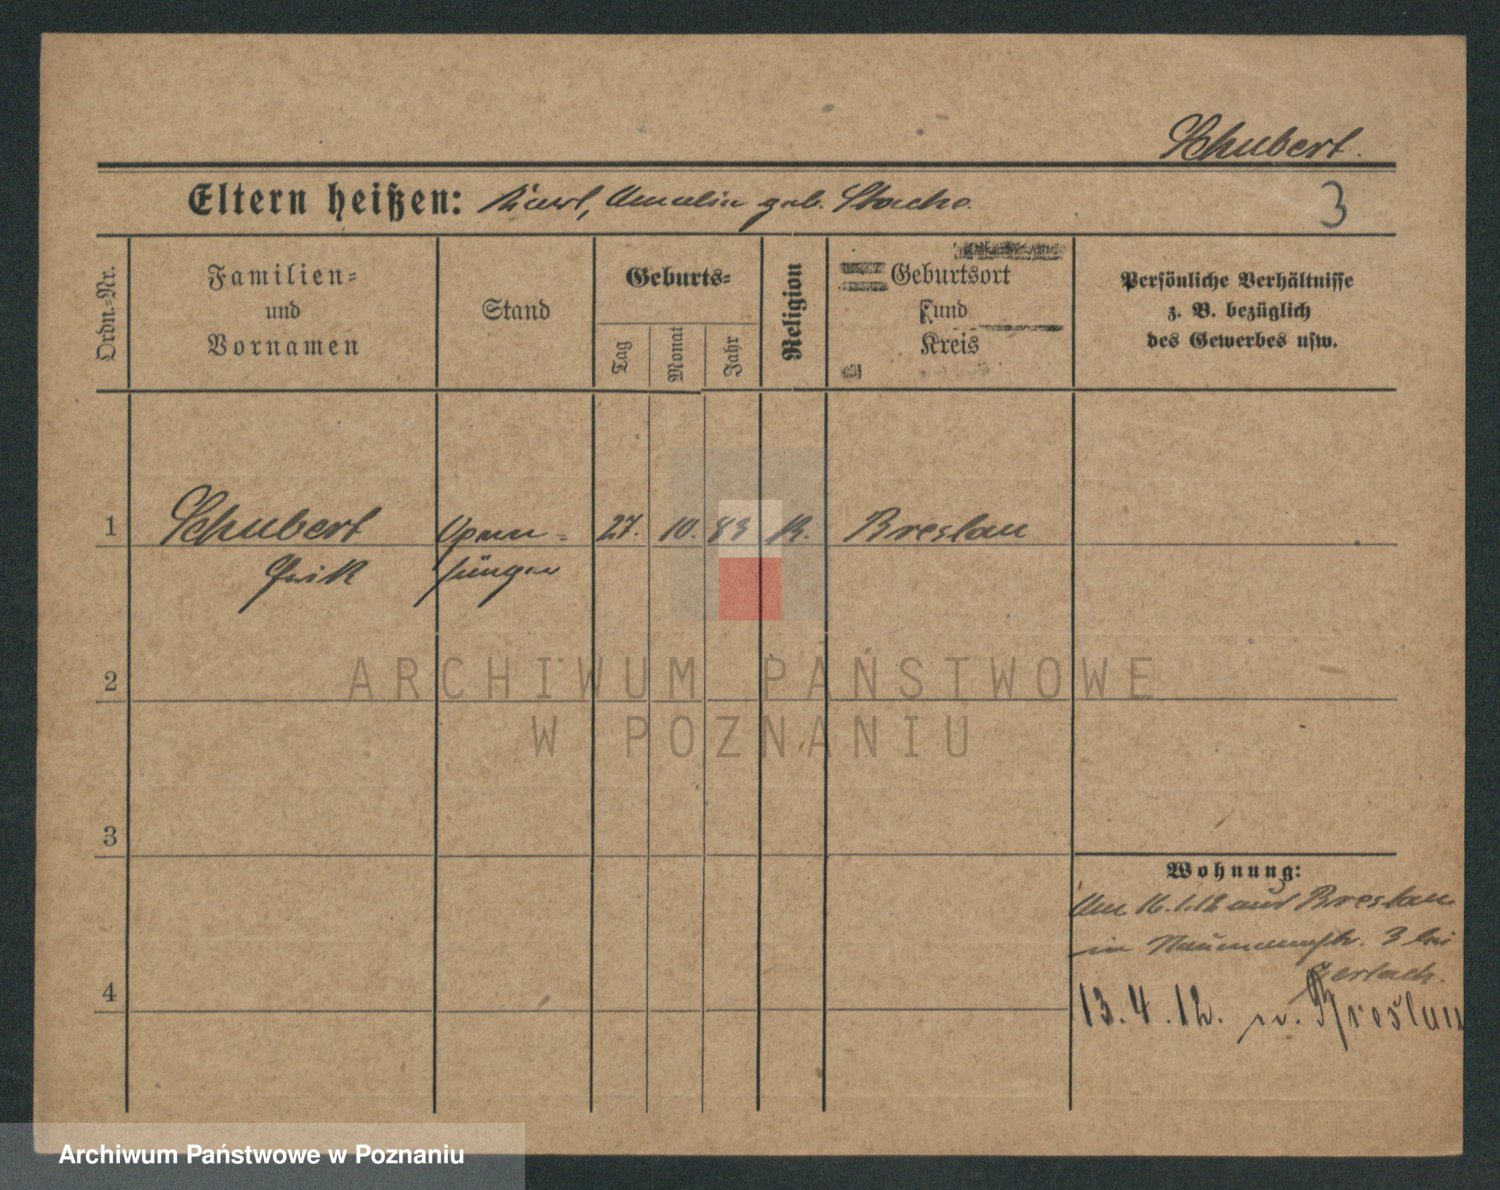 Schubert.
Eltern heißen: Karl, Amalie geb. Stache.
3
Ordn.-Nr.
Familien-
und
Vornamen
Stand
Geburts-
Tag
Monat
Jahr
Religion
Geburtsort
und
Kreis
Persönliche Verhältnisse
z. B. bezüglich
des Gewerbes usw.
1 Schubert Opern- 27. 10. 83 K. Breslau
sänger
2
ARCHIWUM PAŃSTWOWE
W POZNANIU
3
Wohnung:
Am 16.1.12 aus Breslau
in Naumannstr. 3 bei
Gerlach.
4
13.4.12. n. Breslau
Archiwum Państwowe w Poznaniu